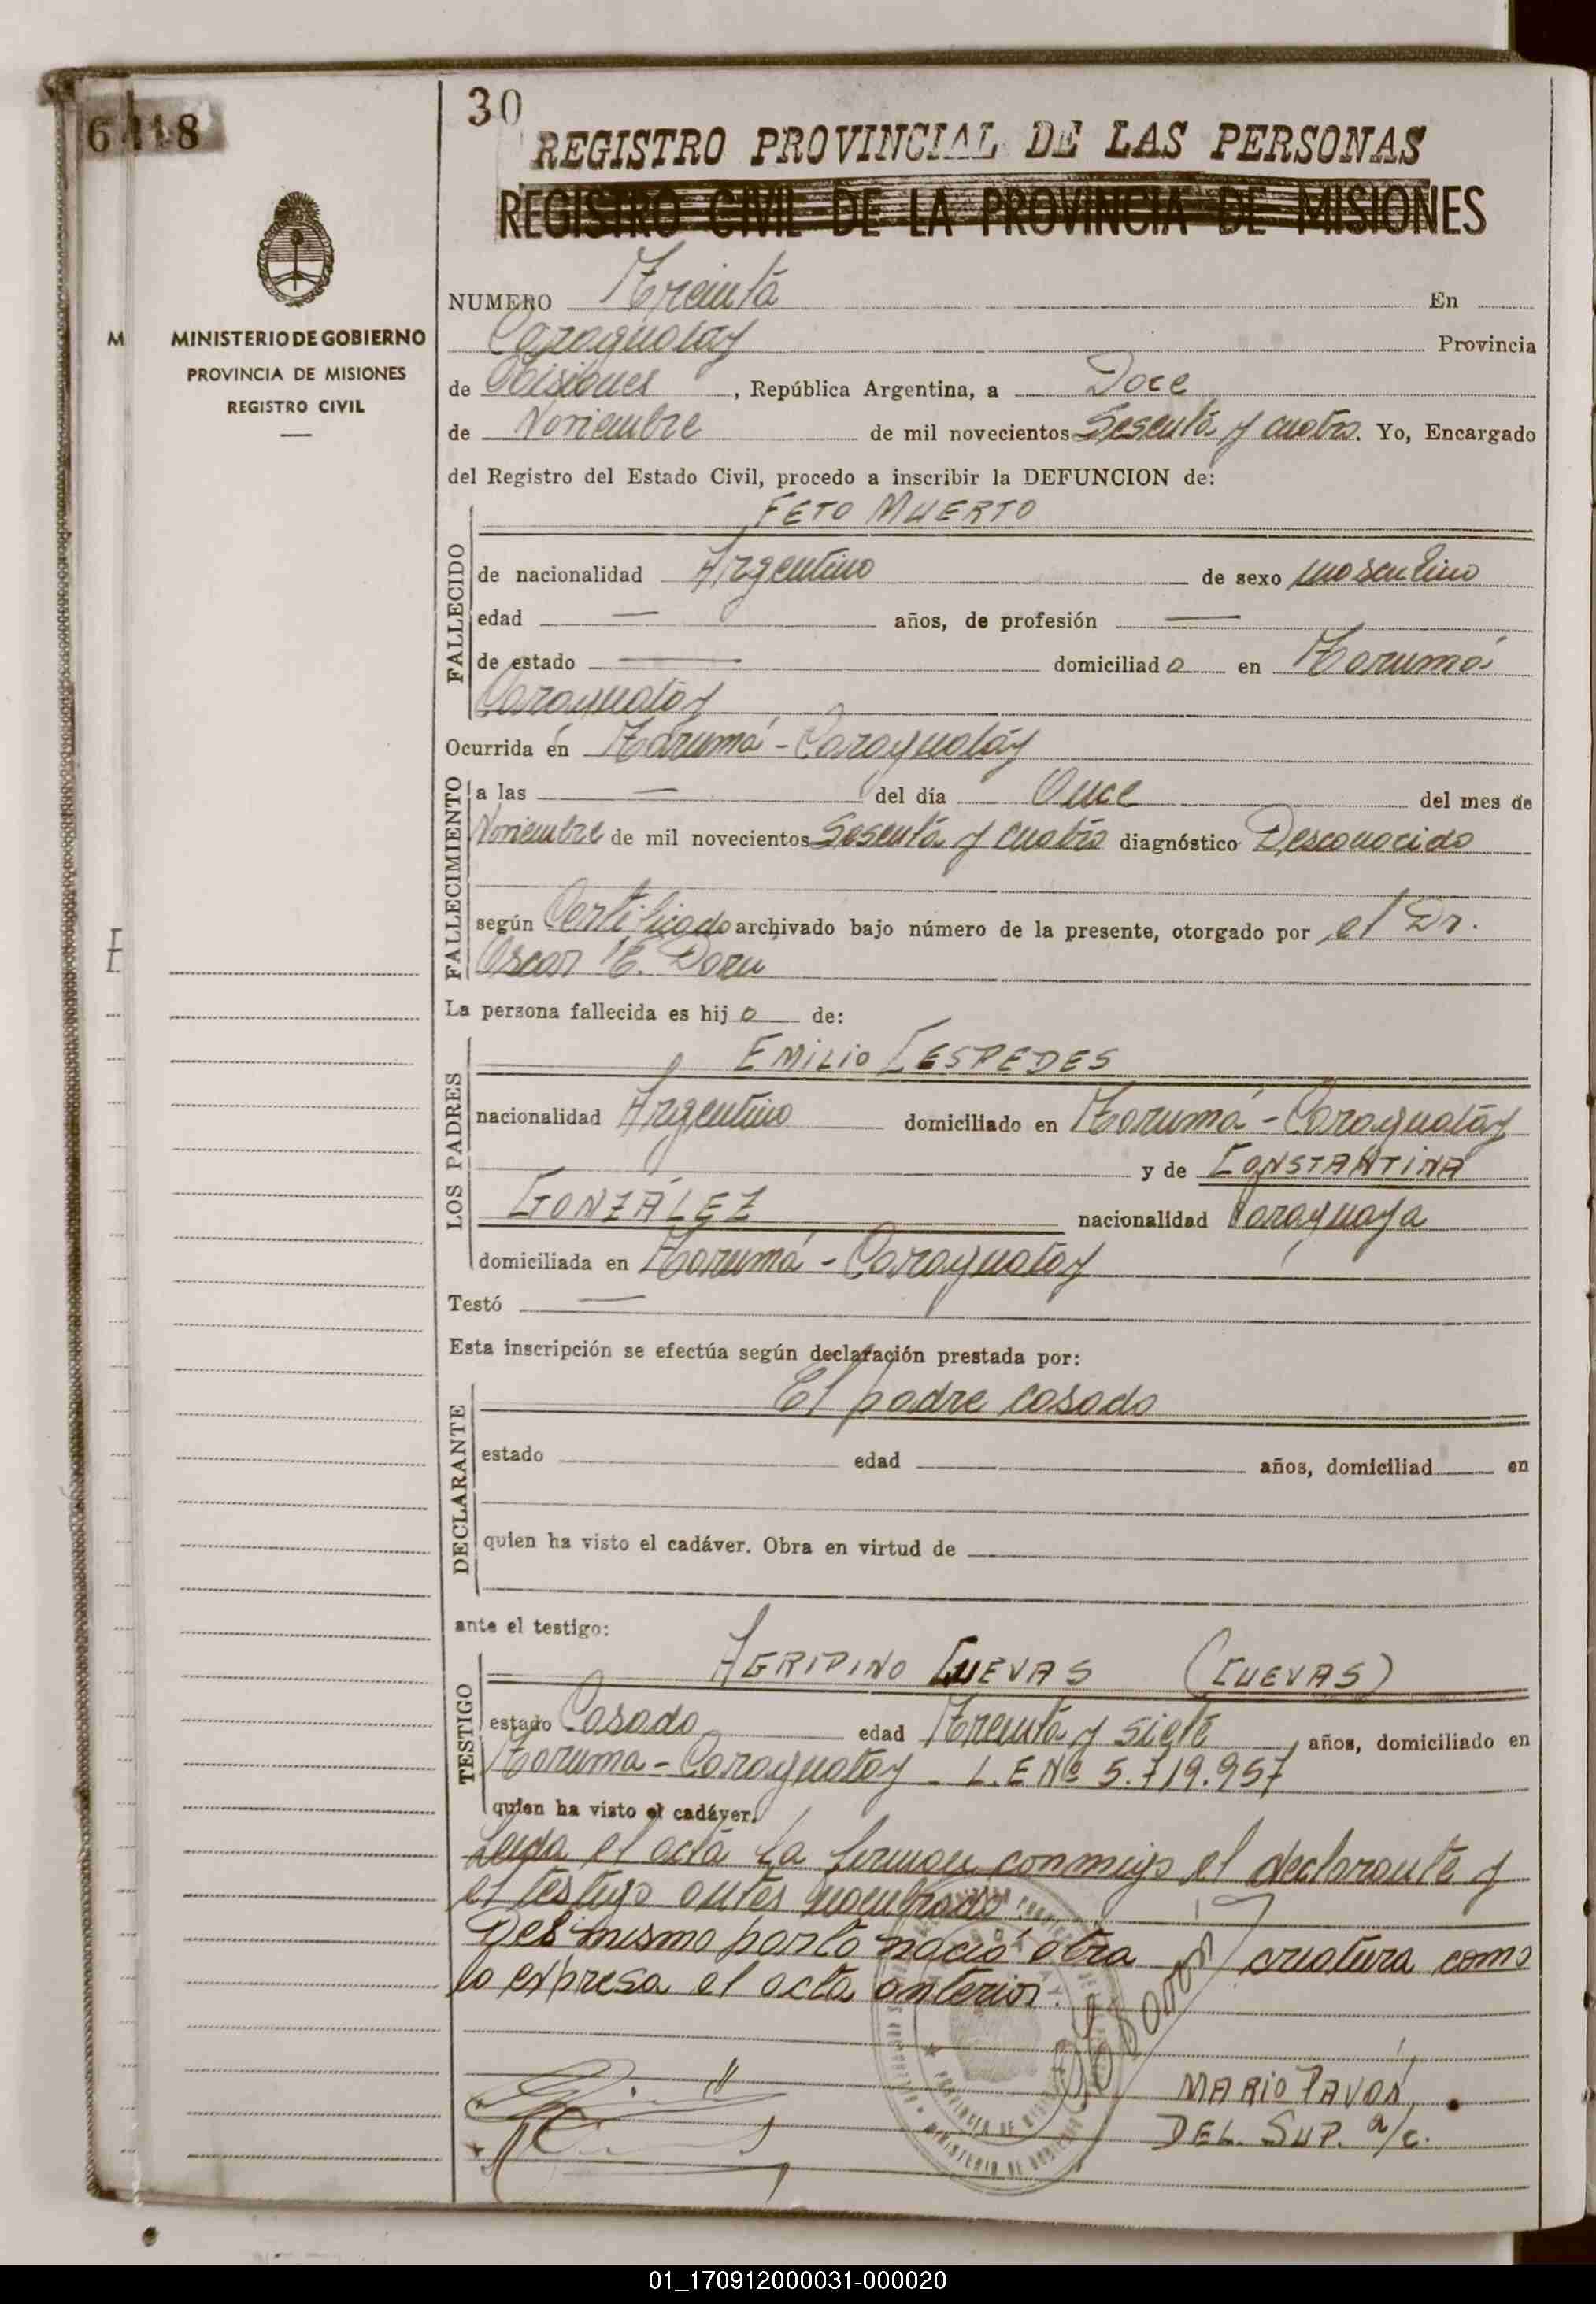 6118
30
REGISTRO PROVINCIAL DE LAS PERSONAS
REGISTRO CIVIL DE LA PROVINCIA DE MISIONES
M
MINISTERIO DE GOBIERNO
PROVINCIA DE MISIONES
REGISTRO CIVIL
NUMERO Treinta En
Caraguatay Provincia
de Misiones, República Argentina, a Doce
de Noviembre de mil novecientos Sesenta y cuatro. Yo, Encargado
del Registro del Estado Civil, procedo a inscribir la DEFUNCION de:
FETO MUERTO
FALLECIDO
de nacionalidad Argentino de sexo masculino
edad — años, de profesión —
de estado — domiciliado en Tarumá
Caraguatay
Ocurrida en Tarumá - Caraguatáy
FALLECIMIENTO
a las — del día Once del mes de
Noviembre de mil novecientos Sesenta y cuatro diagnóstico Desconocido
según Certificado archivado bajo número de la presente, otorgado por el Dr.
Oscar E.
La persona fallecida es hijo de:
LOS PADRES
EMILIO CESPEDES
nacionalidad Argentino domiciliado en Tarumá - Caraguatáy
y de CONSTANTINA
GONZÁLEZ nacionalidad Paraguaya
domiciliada en Tarumá - Caraguatay
Testó —
Esta inscripción se efectúa según declaración prestada por:
DECLARANTE
El padre casado
estado edad años, domiciliad en
quien ha visto el cadáver. Obra en virtud de
ante el testigo:
TESTIGO
AGRIPINO CUEVAS (CUEVAS)
estado Casado edad Treinta y siete años, domiciliado en
Taruma - Caraguatay - L.E Nº 5.719.957
quien ha visto el cadáver.
Leida el acta la firman conmigo el declarante y
el testigo antes nombrado.
Del mismo parto nació otra criatura como
lo expresa el acta anterior.
MARIO PAVON
DEL. SUP. a/c.
01_170912000031-000020